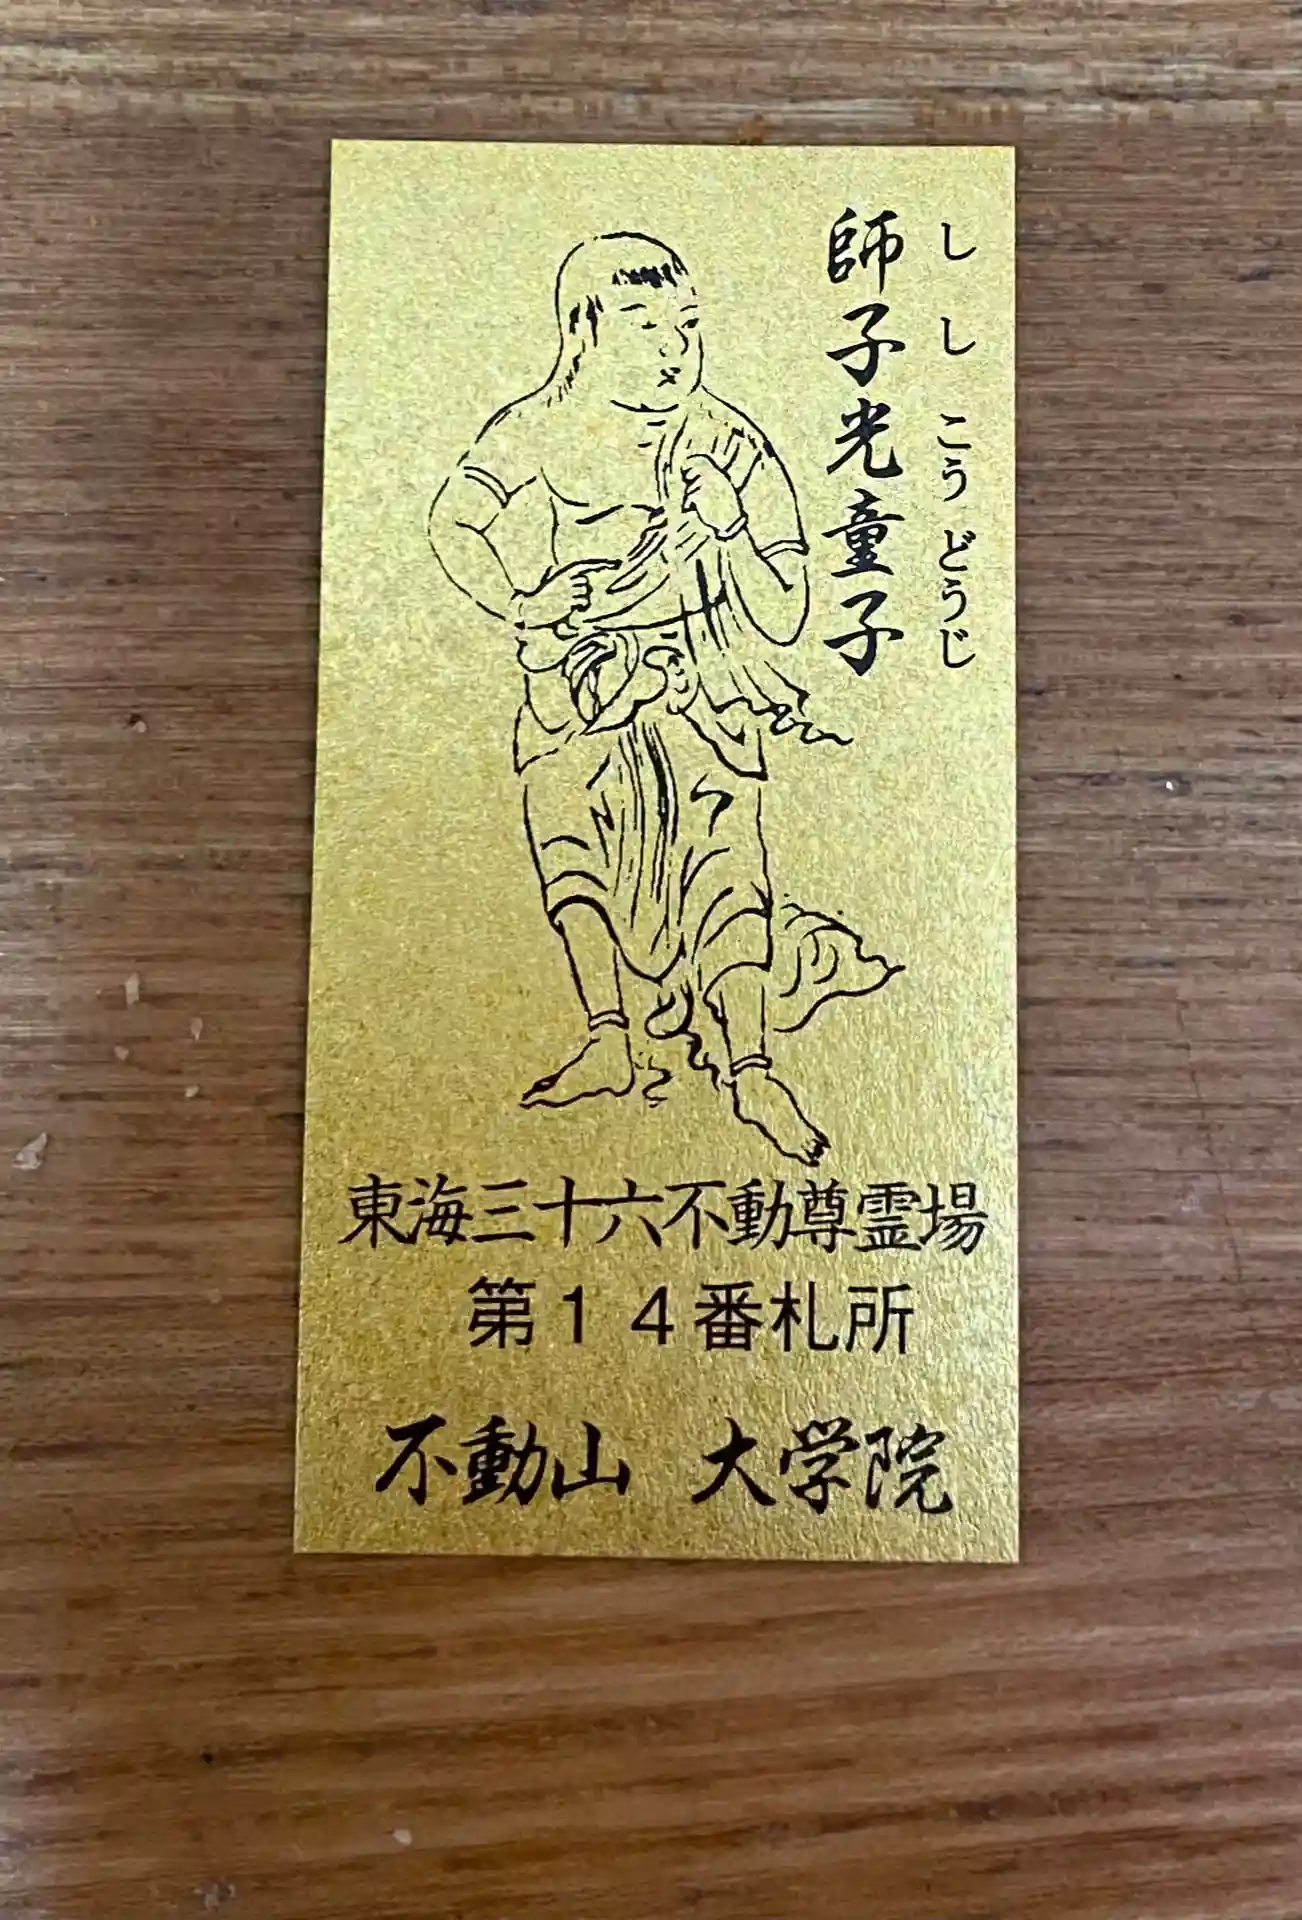 師子光童子
しし こう どうじ
東海三十六不動尊霊場
第１４番札所
不動山 大学院